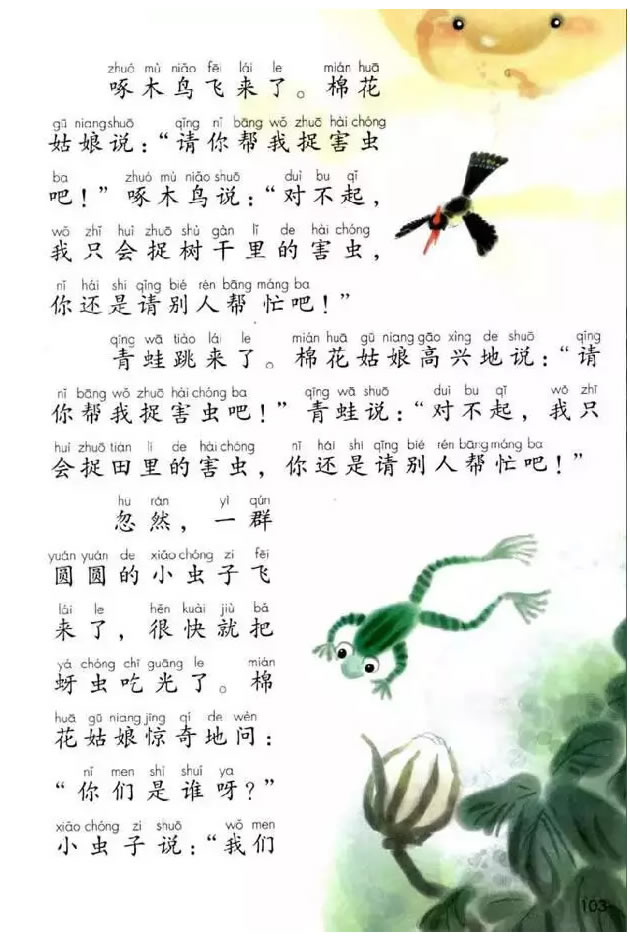 zhuó mù niǎo fēi lái le mián huā
啄木鸟飞来了。棉花
gū niang shuō qǐng nǐ bāng wǒ zhuō hài chóng
姑娘说：“请你帮我捉害虫
ba zhuó mù niǎo shuō duì bu qǐ
吧！”啄木鸟说：“对不起，
wǒ zhǐ huì zhuō shù gàn lǐ de hài chóng
我只会捉树干里的害虫，
nǐ hái shi qǐng bié rén bāng máng ba
你还是请别人帮忙吧！”
qīng wā tiào lái le mián huā gū niang gāo xìng de shuō qǐng
青蛙跳来了。棉花姑娘高兴地说：“请
nǐ bāng wǒ zhuō hài chóng ba qīng wā shuō duì bu qǐ wǒ zhǐ
你帮我捉害虫吧！”青蛙说：“对不起，我只
huì zhuō tián li de hài chóng nǐ hái shi qǐng bié rén bāng máng ba
会捉田里的害虫，你还是请别人帮忙吧！”
hū rán yì qún
忽然，一群
yuán yuán de xiǎo chóng zi fēi
圆圆的小虫子飞
lái le hěn kuài jiù bǎ
来了，很快就把
yá chóng chī guāng le mián
蚜虫吃光了。棉
huā gū niang jīng qí de wèn
花姑娘惊奇地问：
nǐ men shì shuí ya
“你们是谁呀？”
xiǎo chóng zi shuō wǒ men
小虫子说：“我们
103